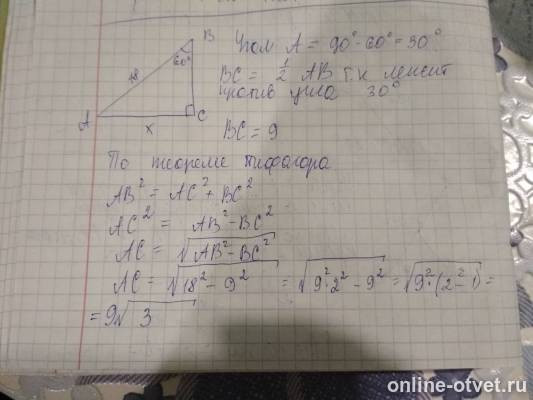 B
18
60°
A
C
x
Угол A = 90° - 60° = 30°
BC = 1/2 AB т.к лежит
против угла 30°
BC = 9
По теореме пифагора
AB² = AC² + BC²
AC² = AB² - BC²
AC = √(AB² - BC²)
AC = √(18² - 9²) = √(9²·2² - 9²) = √(9²·(2² - 1)) =
= 9√3
online-otvet.ru